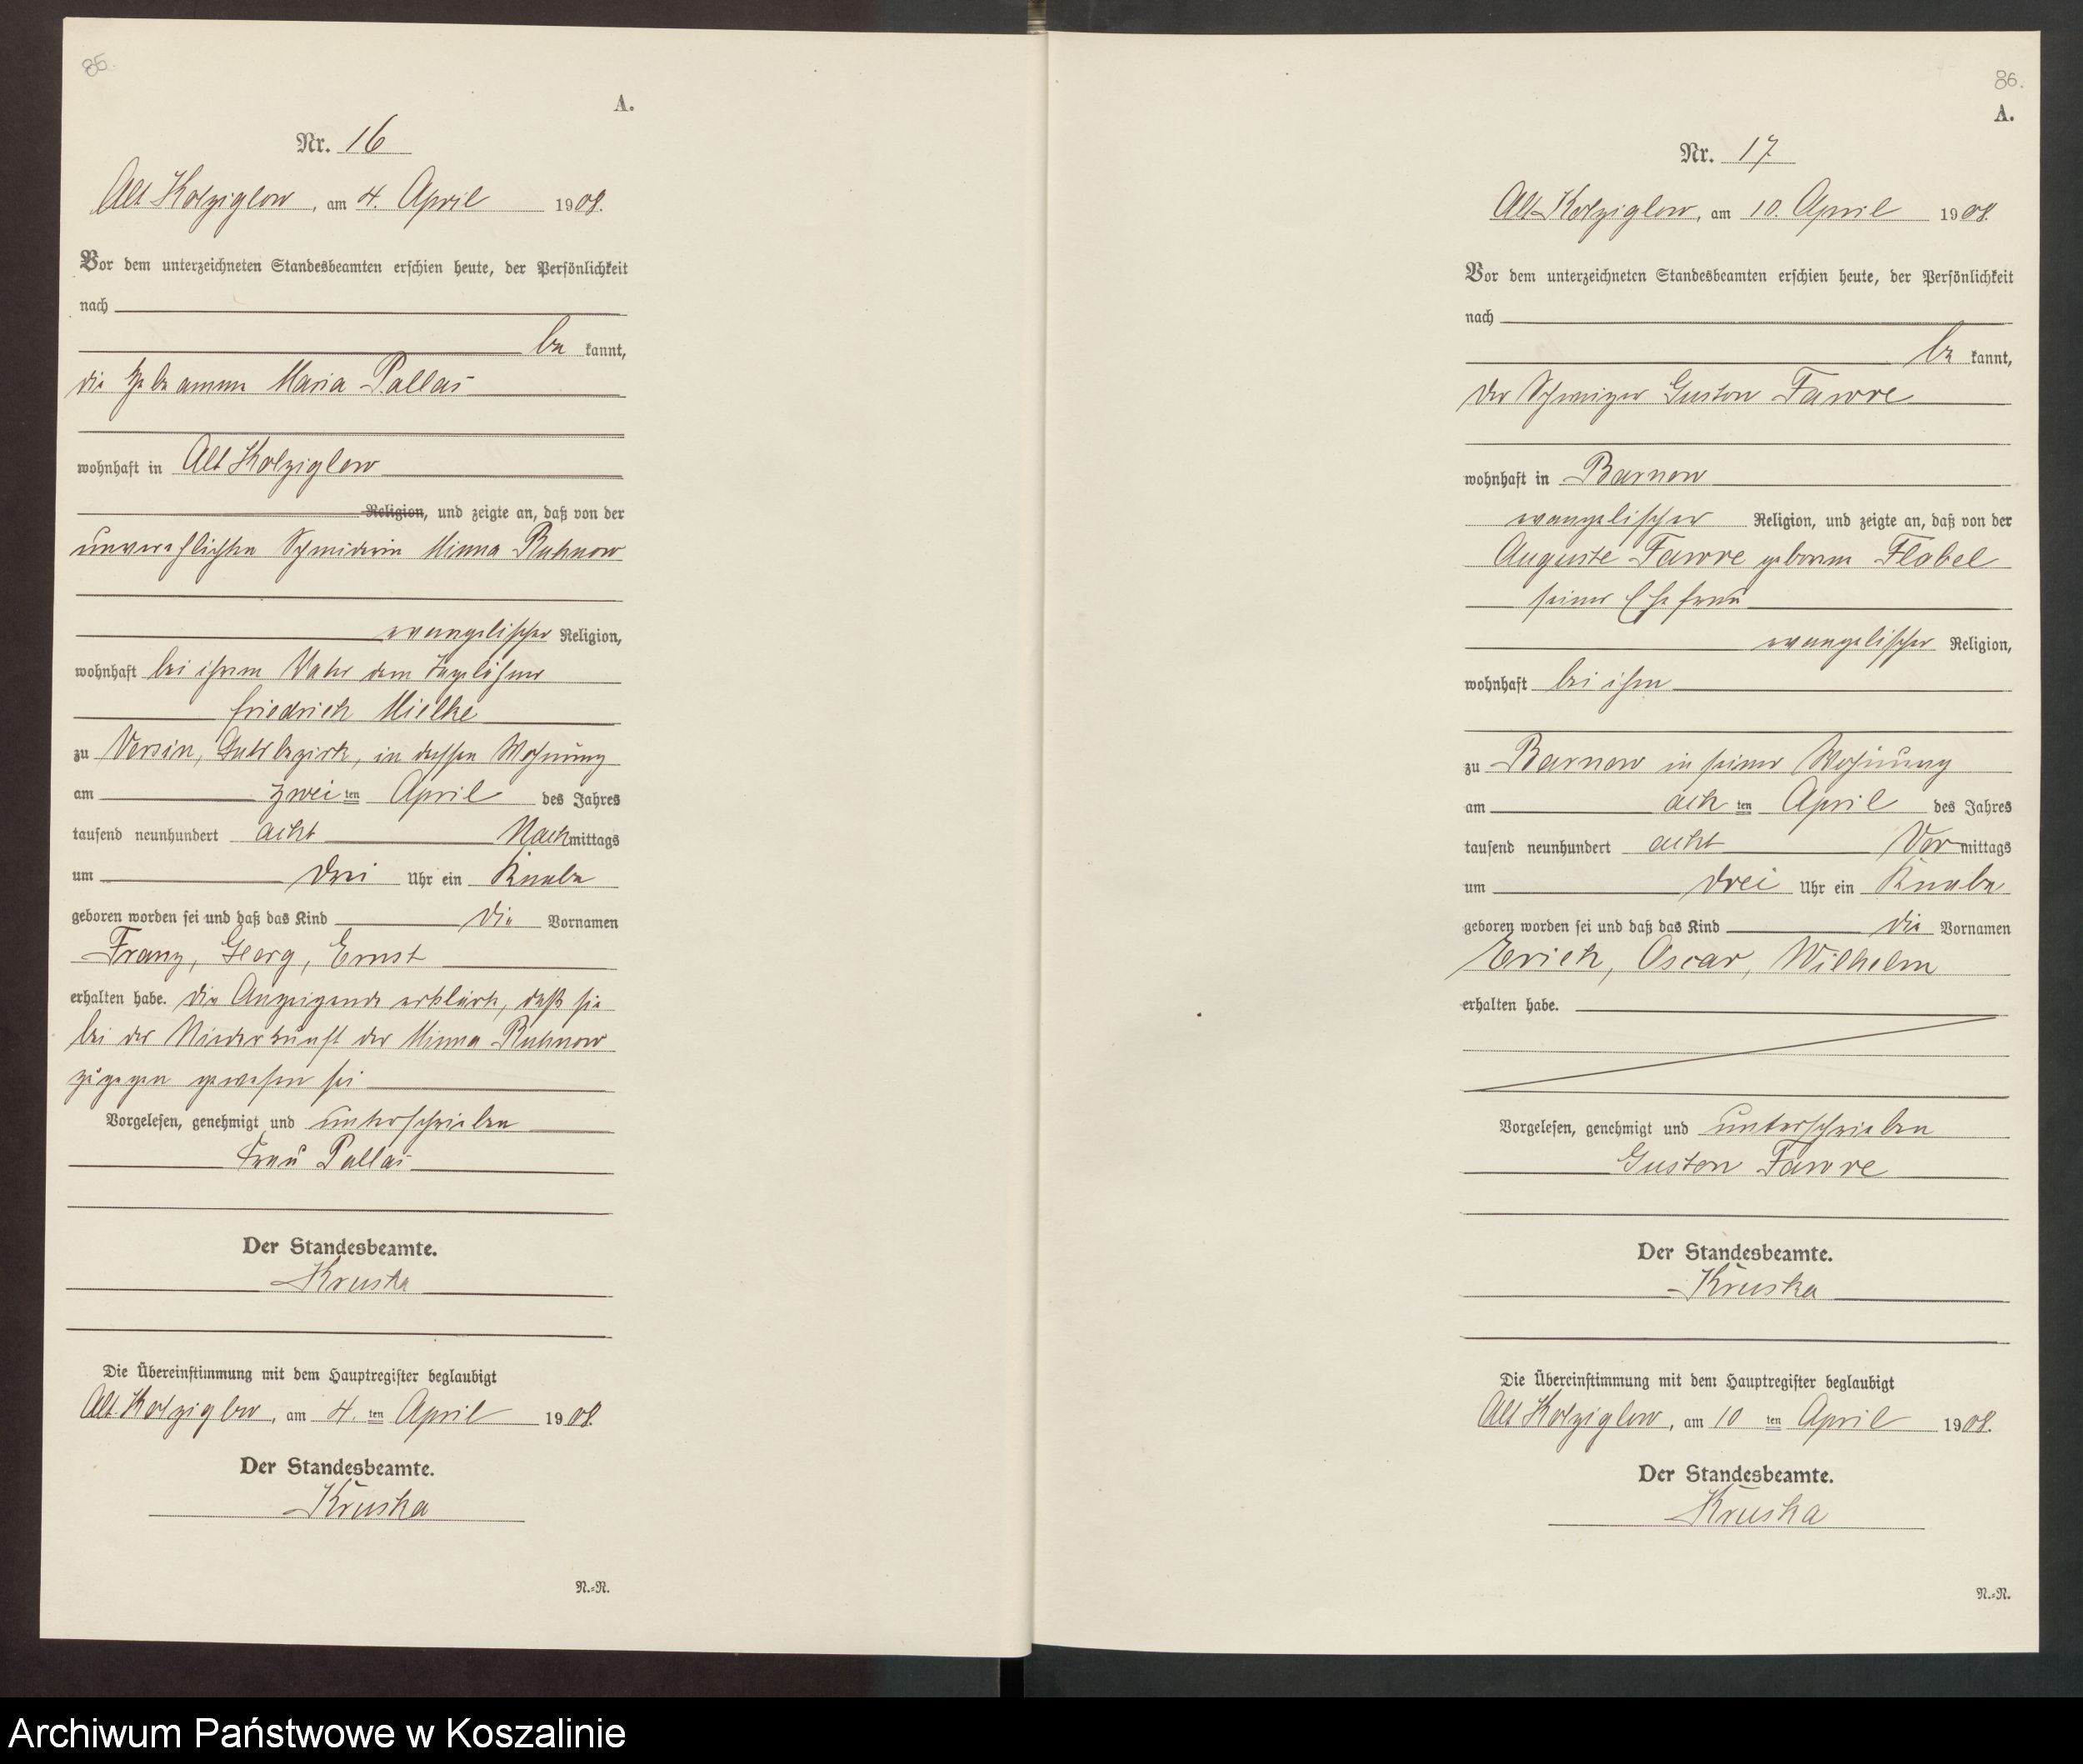 85.
A.
Nr. 16
Alt Kolziglow, am 4. April 1908.
Vor dem unterzeichneten Standesbeamten erschien heute, der Persönlichkeit
nach
be kannt,
die Hebamme Maria Pallas
wohnhaft in Alt Kolziglow
Religion, und zeigte an, daß von der
unverehelichten Schneiderin Minna Ruhnow
evangelischer Religion,
wohnhaft bei ihrem Vater dem Tagelöhner
Friedrich Mielke
zu Versin, Gutsbezirk, in dessen Wohnung
am zwei ten April des Jahres
tausend neunhundert acht Nachmittags
um drei Uhr ein Knabe
geboren worden sei und daß das Kind die Vornamen
Franz, Georg, Ernst
erhalten habe. Die Anzeigende erklärte, daß sie
bei der Niederkunft der Minna Ruhnow
zugegen gewesen sei
Vorgelesen, genehmigt und unterschrieben
Frau Pallas
Der Standesbeamte.
Kruska
Die Übereinstimmung mit dem Hauptregister beglaubigt
Alt Kolziglow, am 4. ten April 1908.
Der Standesbeamte.
Kruska
N.-N.
86.
A.
Nr. 17
Alt Kolziglow, am 10. April 1908.
Vor dem unterzeichneten Standesbeamten erschien heute, der Persönlichkeit
nach
be kannt,
der Schweizer Guston Fawre
wohnhaft in Barnow
evangelischer Religion, und zeigte an, daß von der
Auguste Fawre geborene Flobel
seiner Ehefrau
evangelischer Religion,
wohnhaft bei ihm
zu Barnow in seiner Wohnung
am ach ten April des Jahres
tausend neunhundert acht Vormittags
um drei Uhr ein Knabe
geboren worden sei und daß das Kind die Vornamen
Erich, Oscar, Wilhelm
erhalten habe.
Vorgelesen, genehmigt und unterschrieben
Guston Fawre
Der Standesbeamte.
Kruska
Die Übereinstimmung mit dem Hauptregister beglaubigt
Alt Kolziglow, am 10 ten April 1908.
Der Standesbeamte.
Kruska
N.-N.
Archiwum Państwowe w Koszalinie